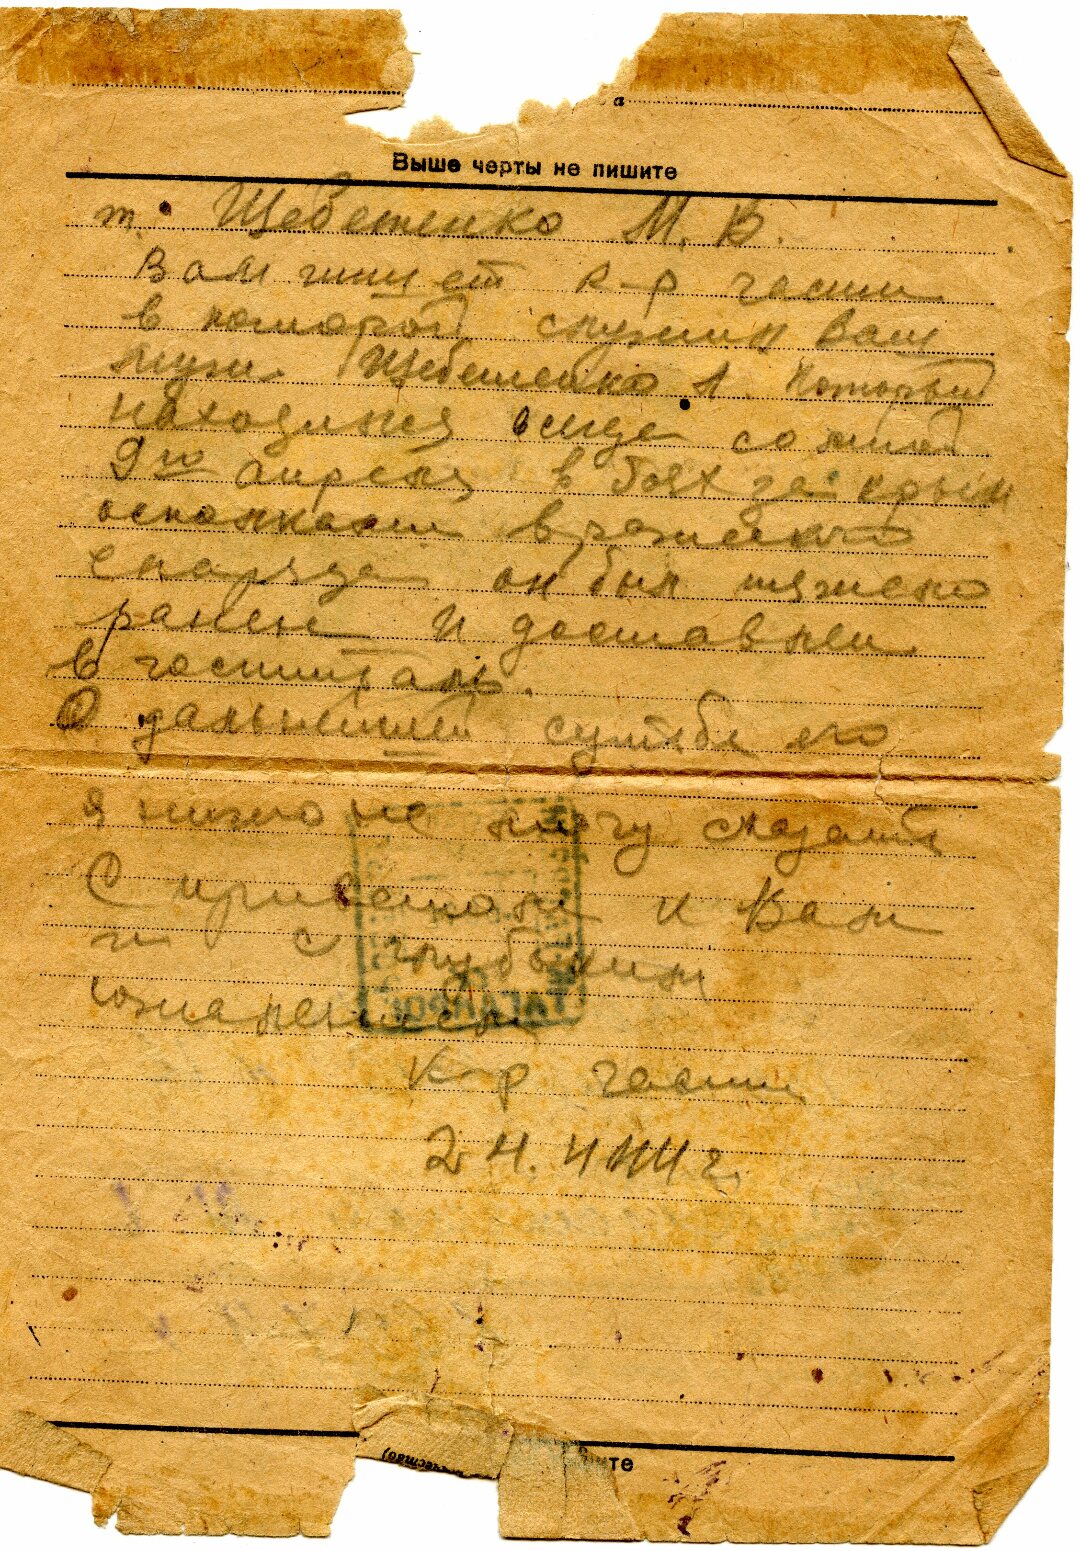 а
Выше черты не пишите
т. Щебетенко М. В.
Вам пишет к-р части
в которой служил Ваш
муж Щебетенко А. который
находился
9го апреля в боях за Крым
осколком вражеского
снаряда он был тяжело
ранен и доставлен
в госпиталь.
О дальнейшей судьбе его
я ничего не могу сказать
С приветом к Вам
и с глубоким
К-р части
24. 4 44 г.
ТАГАНРОГ
ите